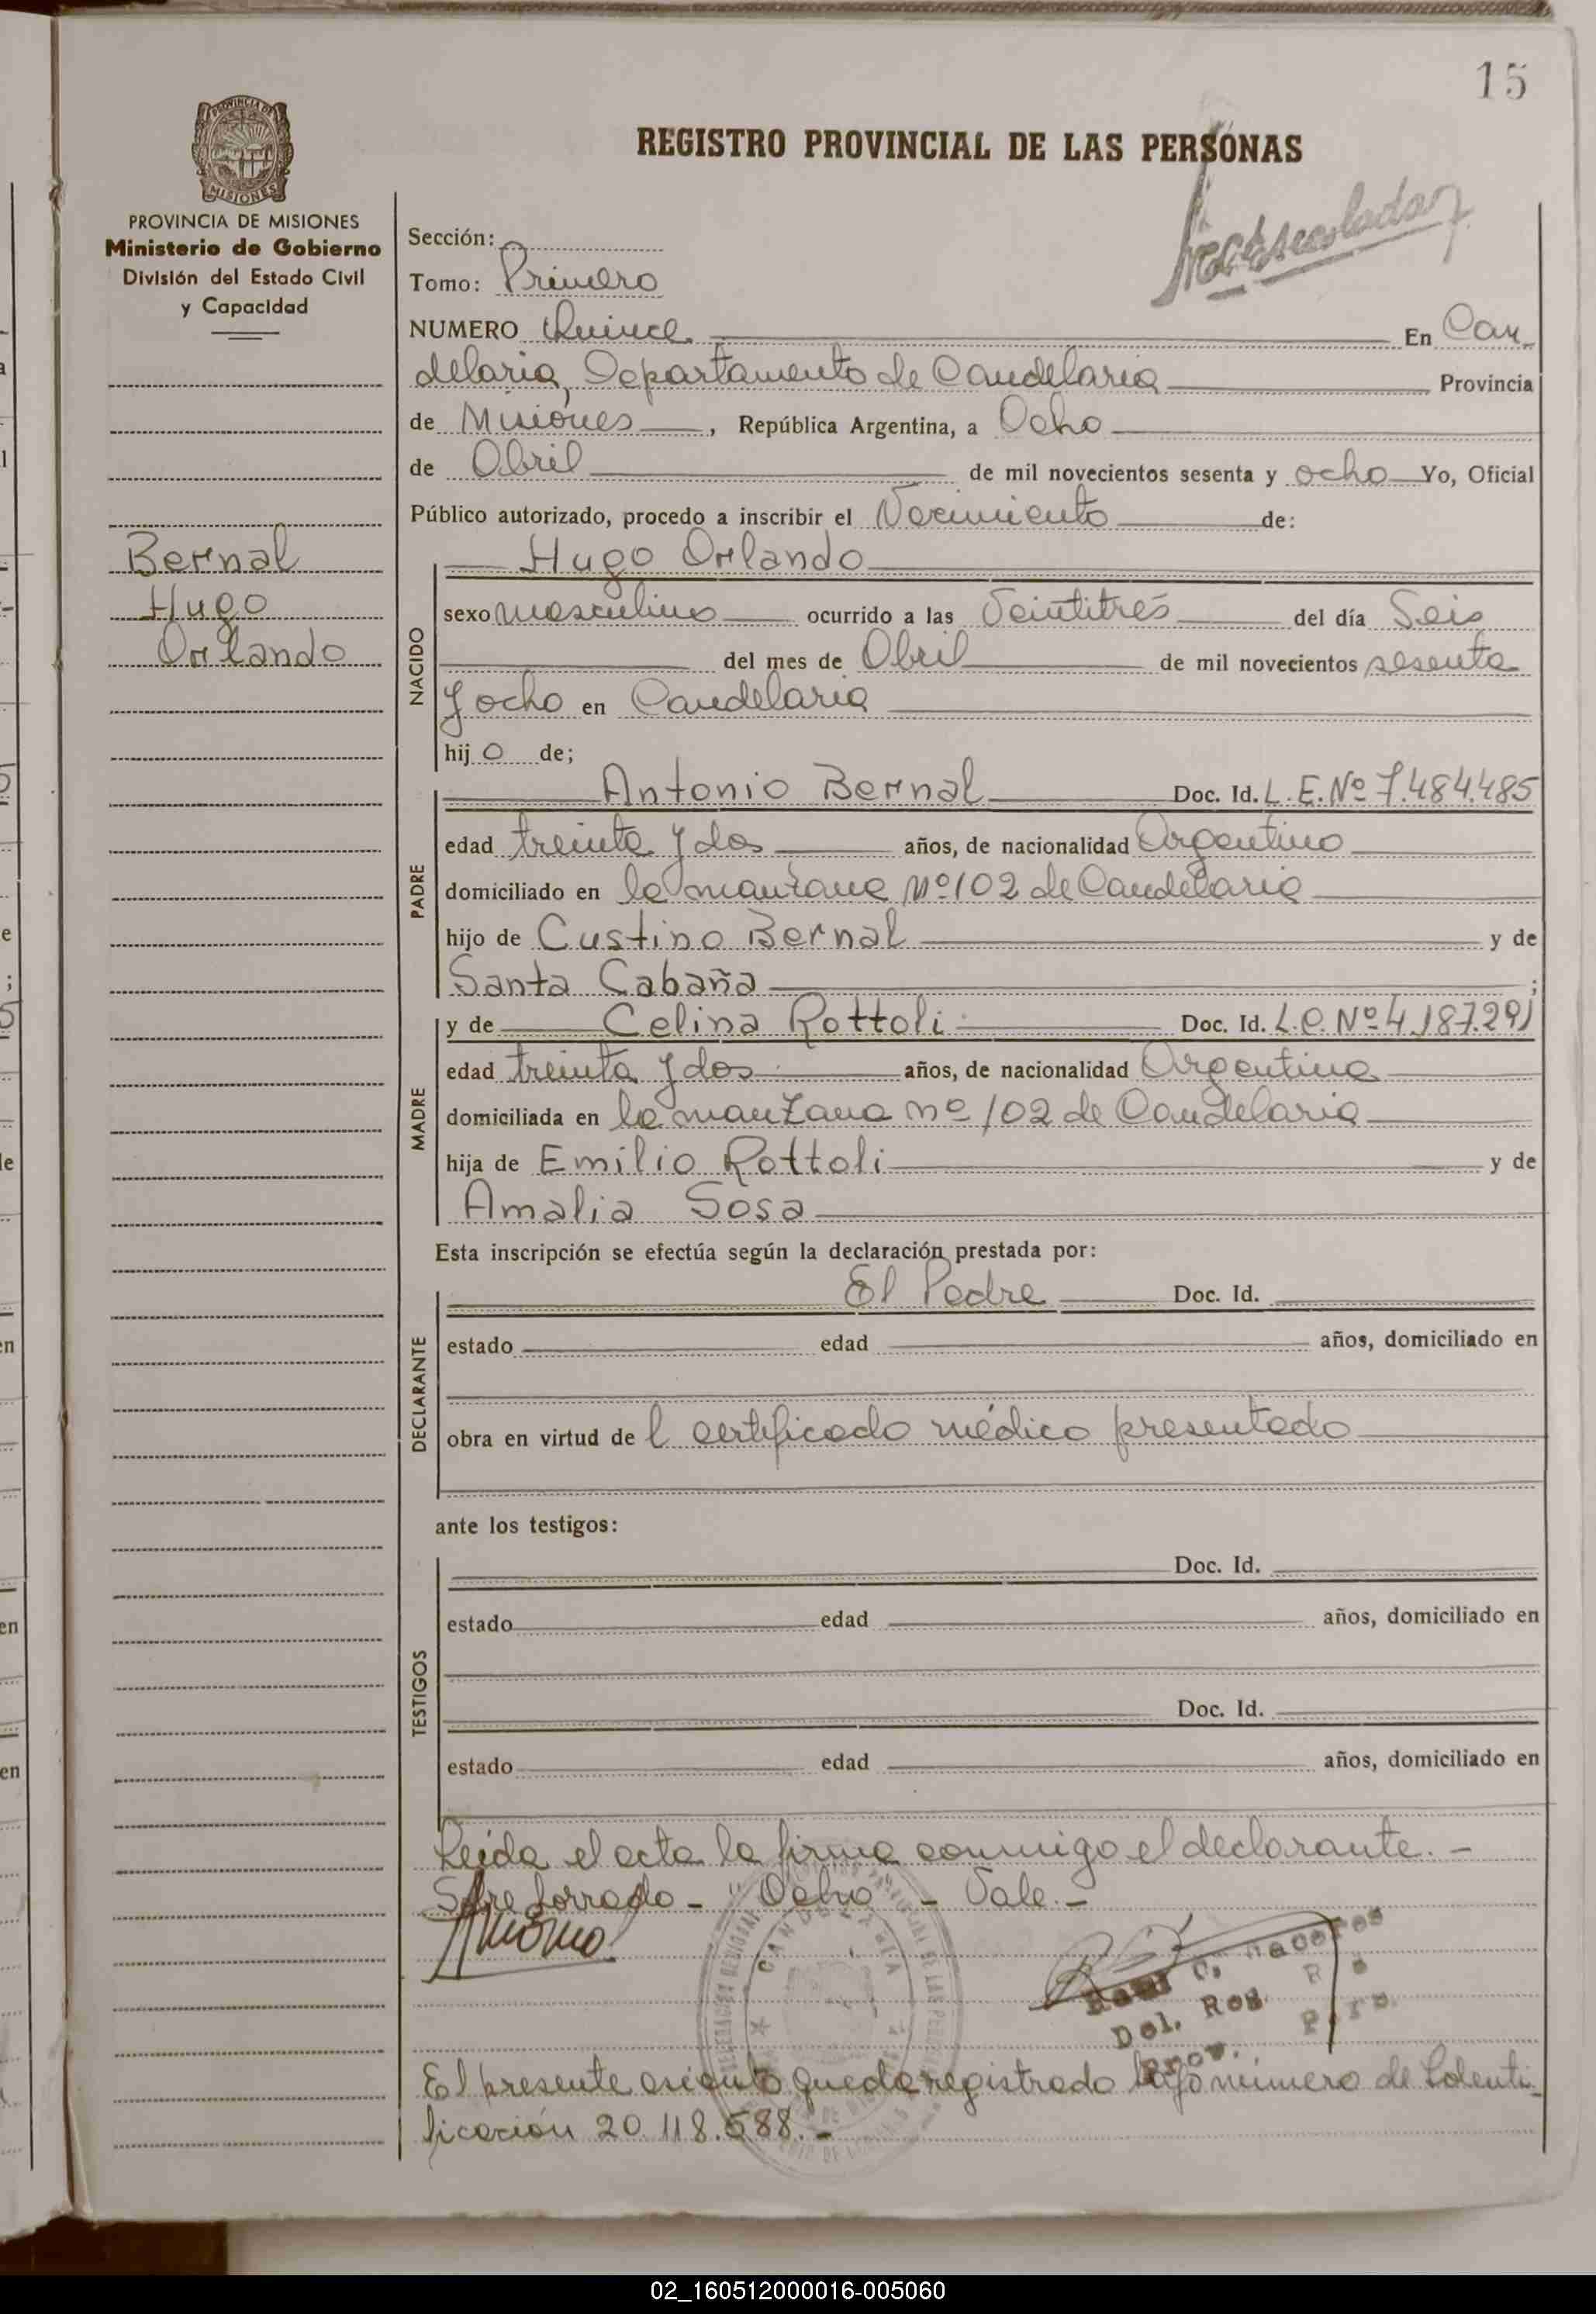 15
PROVINCIA DE
MISIONES
REGISTRO PROVINCIAL DE LAS PERSONAS
PROVINCIA DE MISIONES
Ministerio de Gobierno
División del Estado Civil
y Capacidad
Bernal
Hugo
Orlando
Sección:
Tomo: Primero
NUMERO Quince En Can
delaria, Departamento de Candelaria Provincia
de Misiones, República Argentina, a Ocho
de Abril de mil novecientos sesenta y ocho Yo, Oficial
Público autorizado, procedo a inscribir el Nacimiento de:
NACIDO
Hugo Orlando
sexo masculino ocurrido a las Veintitrés del día Seis
del mes de Abril de mil novecientos sesenta
y ocho en Candelaria
hijo de;
PADRE
Antonio Bernal Doc. Id. L.E. Nº 7.484.485
edad treinta y dos años, de nacionalidad Argentino
domiciliado en la manzana Nº 102 de Candelaria
hijo de Custino Bernal y de
Santa Cabaña ;
MADRE
y de Celina Rottoli Doc. Id. L.C. Nº 4.187.291
edad treinta y dos años, de nacionalidad Argentina
domiciliada en la manzana nº 102 de Candelaria
hija de Emilio Rottoli y de
Amalia Sosa
Esta inscripción se efectúa según la declaración prestada por:
DECLARANTE
El Padre Doc. Id.
estado edad años, domiciliado en
obra en virtud del certificado médico presentado
ante los testigos:
TESTIGOS
Doc. Id.
estado edad años, domiciliado en
Doc. Id.
estado edad años, domiciliado en
Leída el acta la firma conmigo el declarante. -
Sobre borrado - "Ocho" - Vale. -
CANDELARIA
Del. Reg.
Prov.
El presente asiento queda registrado bajo número de Identi
ficación 20.118.588. -
02_160512000016-005060